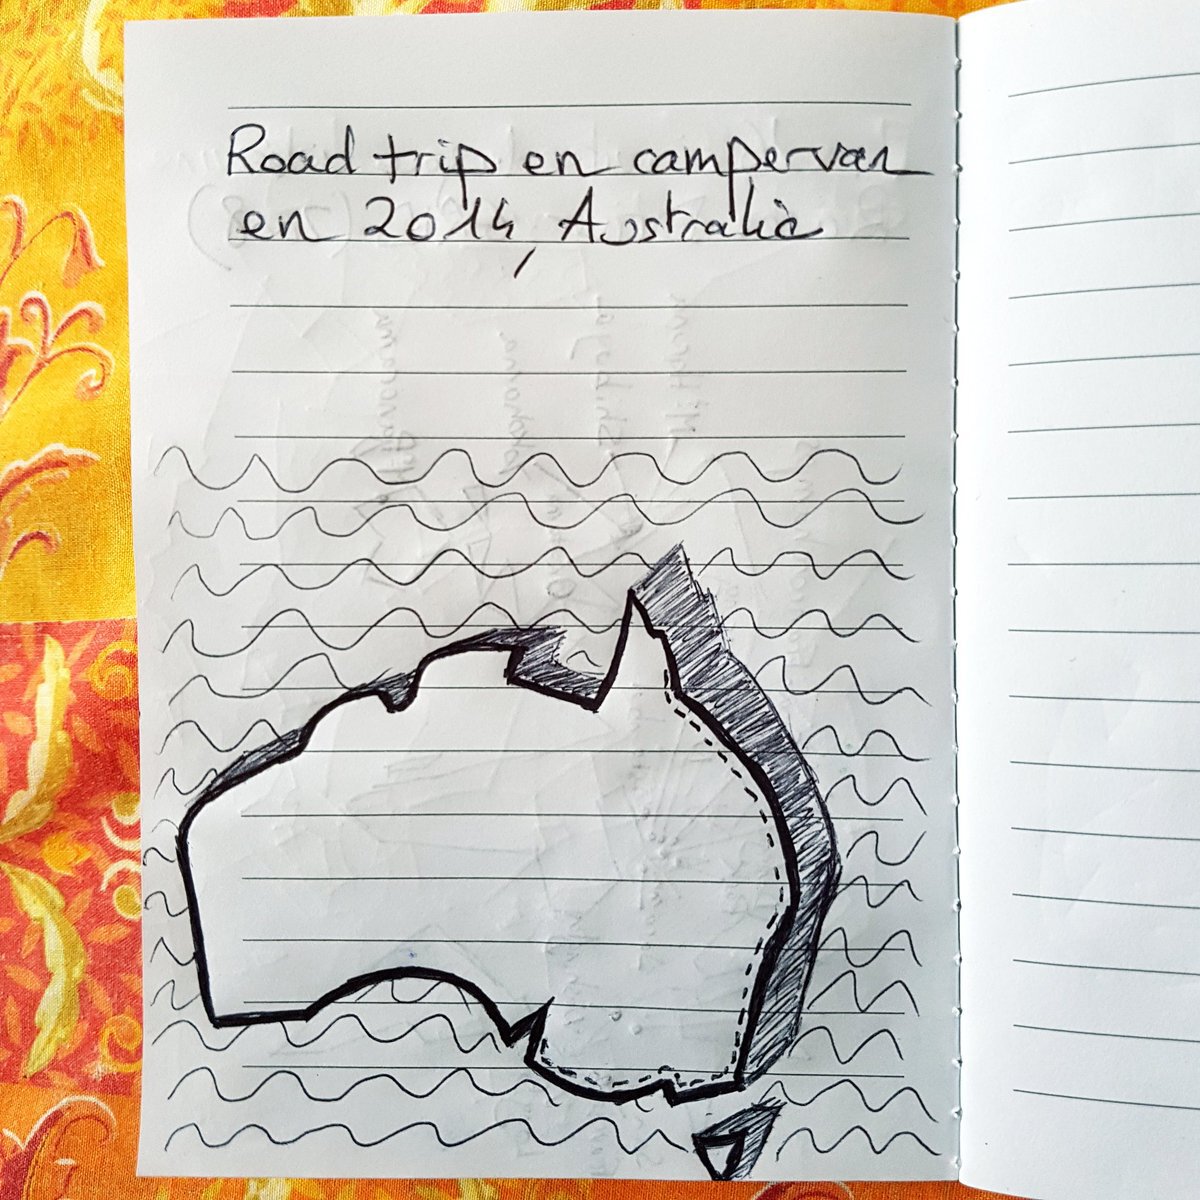 Road trip en campervan
en 2014, Australie